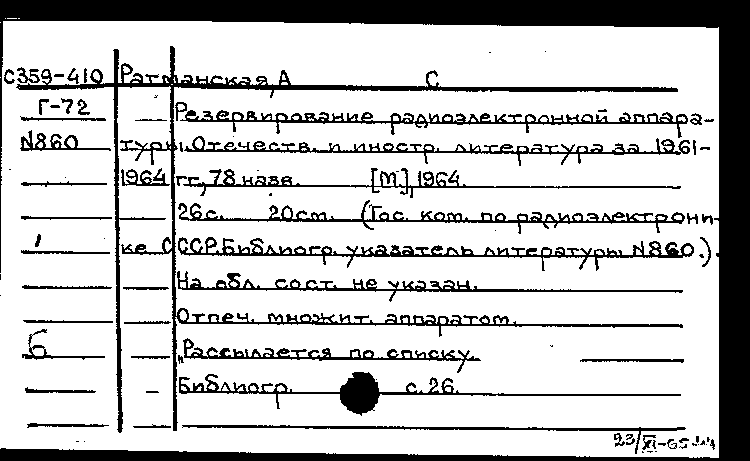 С359-410 Ратманская, А С
Г-72 Резервирование радиоэлектронной аппара-
N860 туры. Отечеств. и иностр. литература за 1961-
1964 гг., 78 назв. [М.], 1964.
26с. 20см. (Гос. ком. по радиоэлектрони-
ке СССР. Библиогр. указатель литературы N860.).
На обл. сост. не указан.
Отпеч. множит. аппаратом.
Б „Рассылается по списку.
Библиогр. с. 26.
23/XI-65